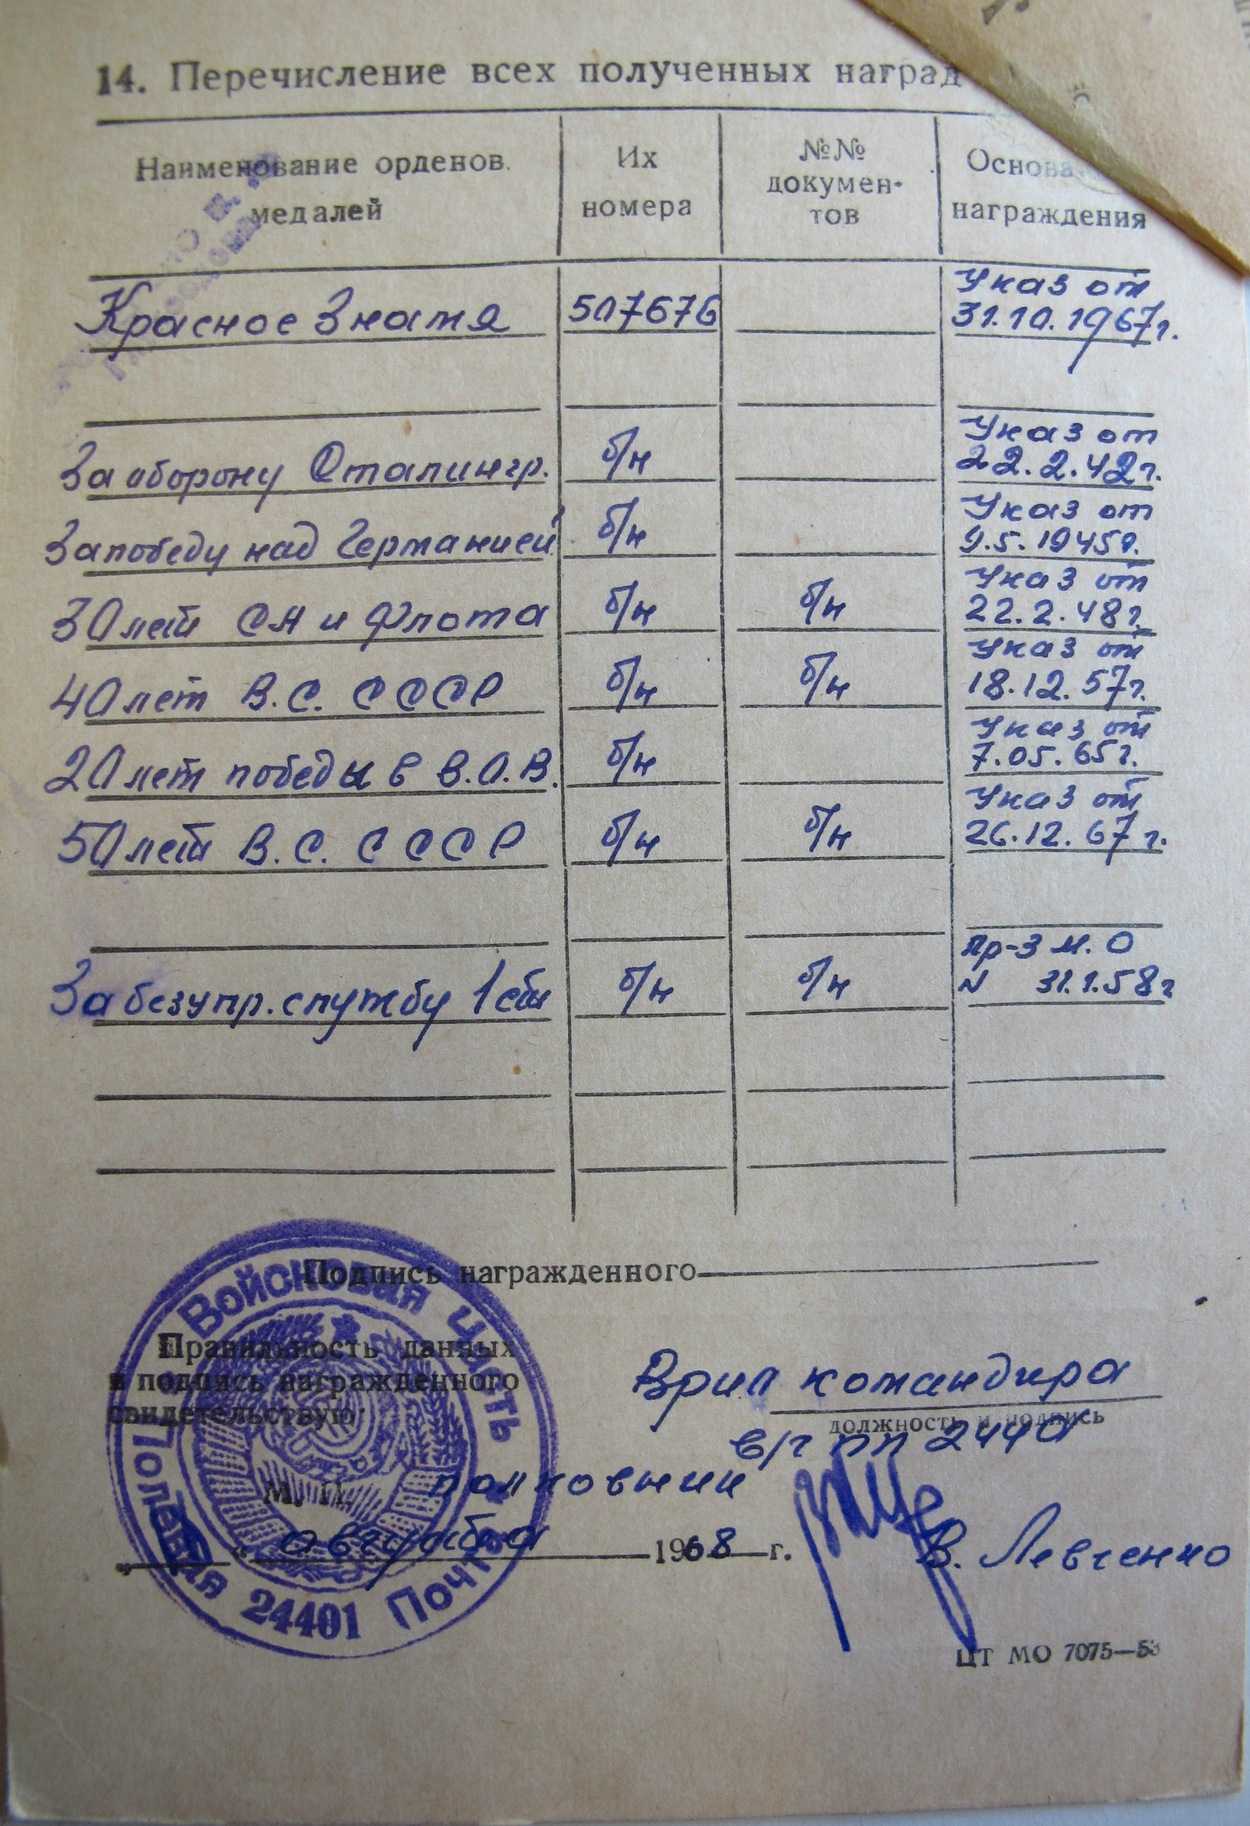 14. Перечисление всех полученных наград
Наименование орденов.
медалей
Их
номера
№№
докумен-
тов
Основа
награждения
Красное Знамя 507676 Указ от
31.10.1967г.
За оборону Сталингр. б/н Указ от
22.2.42г.
За победу над Германией б/н Указ от
9.5.1945г.
30 лет СА и Флота б/н б/н Указ от
22.2.48г.
40 лет В.С. СССР б/н б/н Указ от
18.12.57г.
20 лет победы в В.О.В. б/н Указ от
7.05.65г.
50 лет В.С. СССР б/н б/н Указ от
26.12.67г.
За безупр. службу 1 ст б/н б/н Пр-з М.О
N 31.1.58г
Подпись награжденного
Правильность данных
и подпись награжденного
свидетельствую:
Врид командира
должность и подпись
в/ч пп 24401
М. П. полковник
августа 1968 г. В. Левченко
Войсковая часть
Полевая Почта
24401
ЦТ МО 7075—